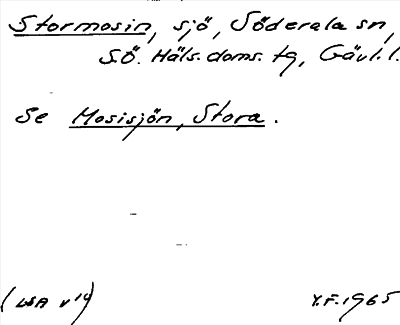 Stormosin, sjö, Söderala sn,
S.Ö. Häls. doms. tg, Gävl. l.
Se Mosisjön, Stora.
(LSA v 14)
Y.F. 1965